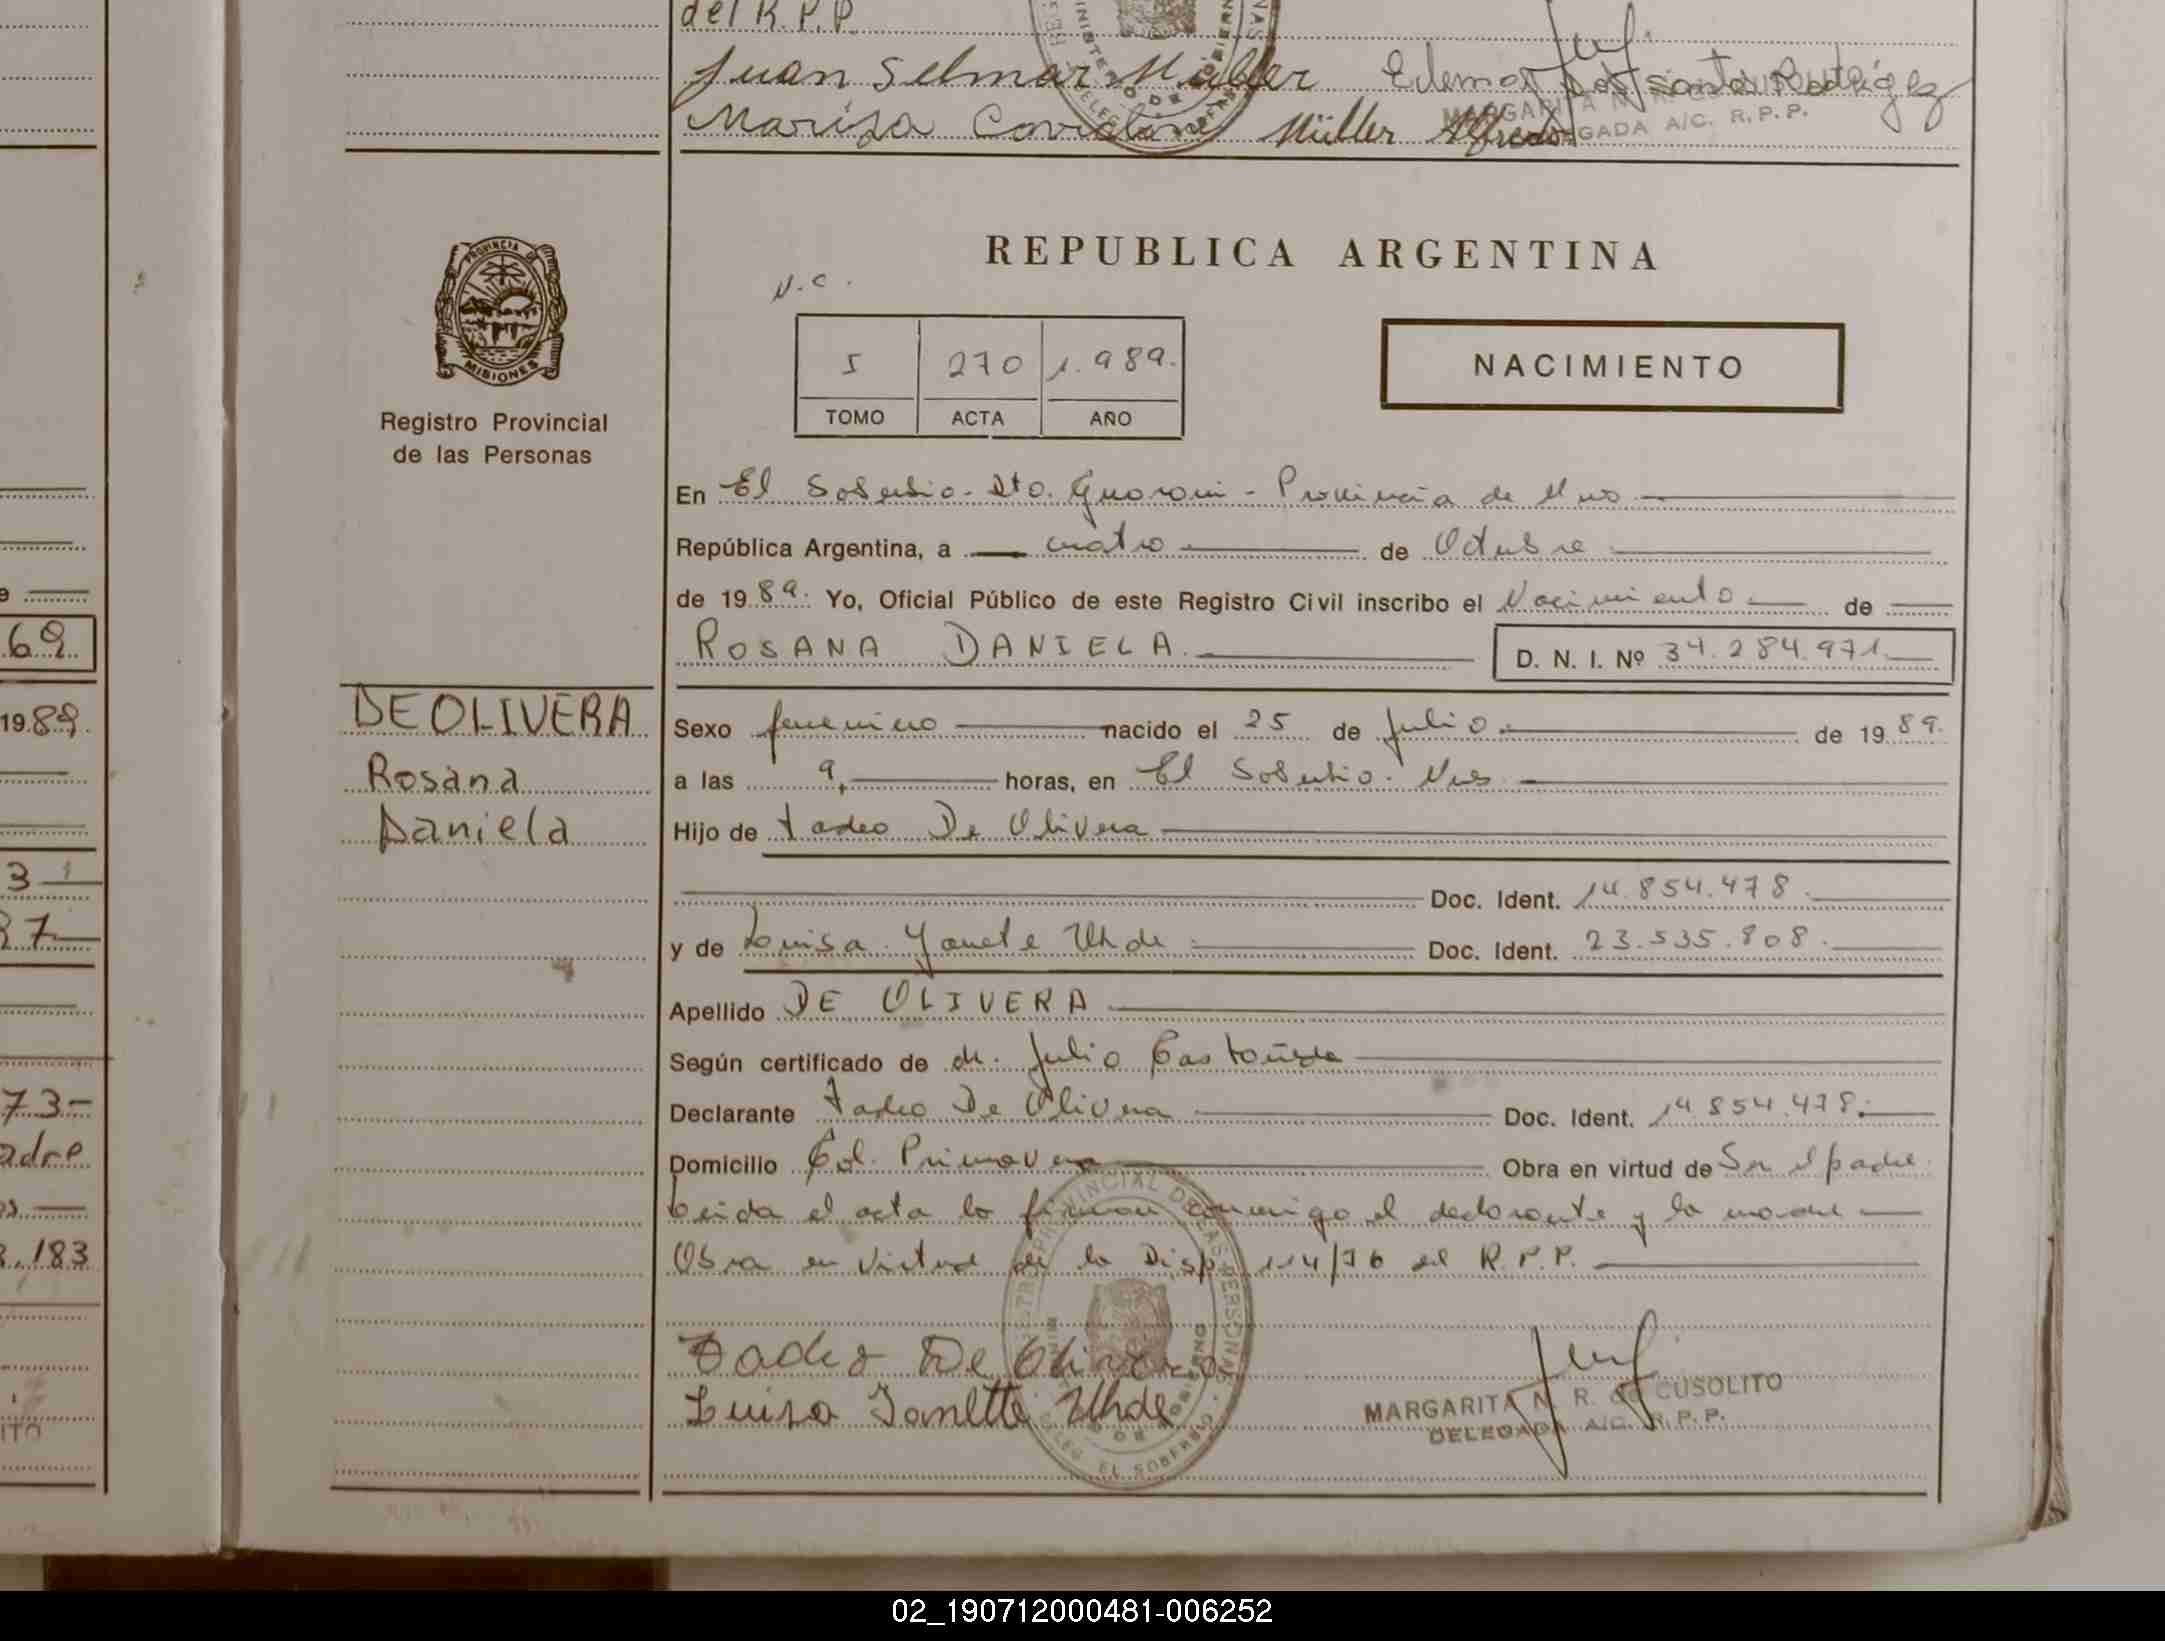 del R.P.P.
Juan Selmar Müller Edemar Dos Santos Rodrigez
Marisa Müller Alfredo
MARGARITA N. R.
DELEGADA A/C. R. P. P.
PROVINCIA DE
MISIONES
Registro Provincial
de las Personas
REPUBLICA ARGENTINA
N.C.
I 270 1.989.
TOMO ACTA AÑO
NACIMIENTO
En El Soberbio - Dto. Guarani - Provincia de Mnes
República Argentina, a cuatro de Octubre
de 1989. Yo, Oficial Público de este Registro Civil inscribo el Nacimiento de
ROSANA DANIELA. D. N. I. Nº 34.284.971
DE OLIVERA
Rosana
Daniela
Sexo femenino nacido el 25 de Julio de 1989.
a las 9, horas, en El Soberbio. Mnes
Hijo de Tadeo De Olivera
Doc. Ident. 14.854.478.
y de Luisa Yanete Uhde Doc. Ident. 23.535.808.
Apellido DE OLIVERA
Según certificado de dr. Julio Castañeda
Declarante Tadeo De Olivera Doc. Ident. 14.854.478.
Domicilio Col. Primavera Obra en virtud de Ser el padre
Leida el acta la firman conmigo el declarante y la madre
Obra en virtud de la Disp. 114/76 del R.P.P.
Tadeo De Olivera
Luisa Janette Uhde
MARGARITA N. R. de CUSOLITO
DELEGADA A/C. R. P. P.
REGISTRO PROVINCIAL DE LAS PERSONAS
MINISTERIO DE GOBIERNO
DELEG. EL SOBERBIO
69
1989.
3
87
73-
adre
183
02_190712000481-006252